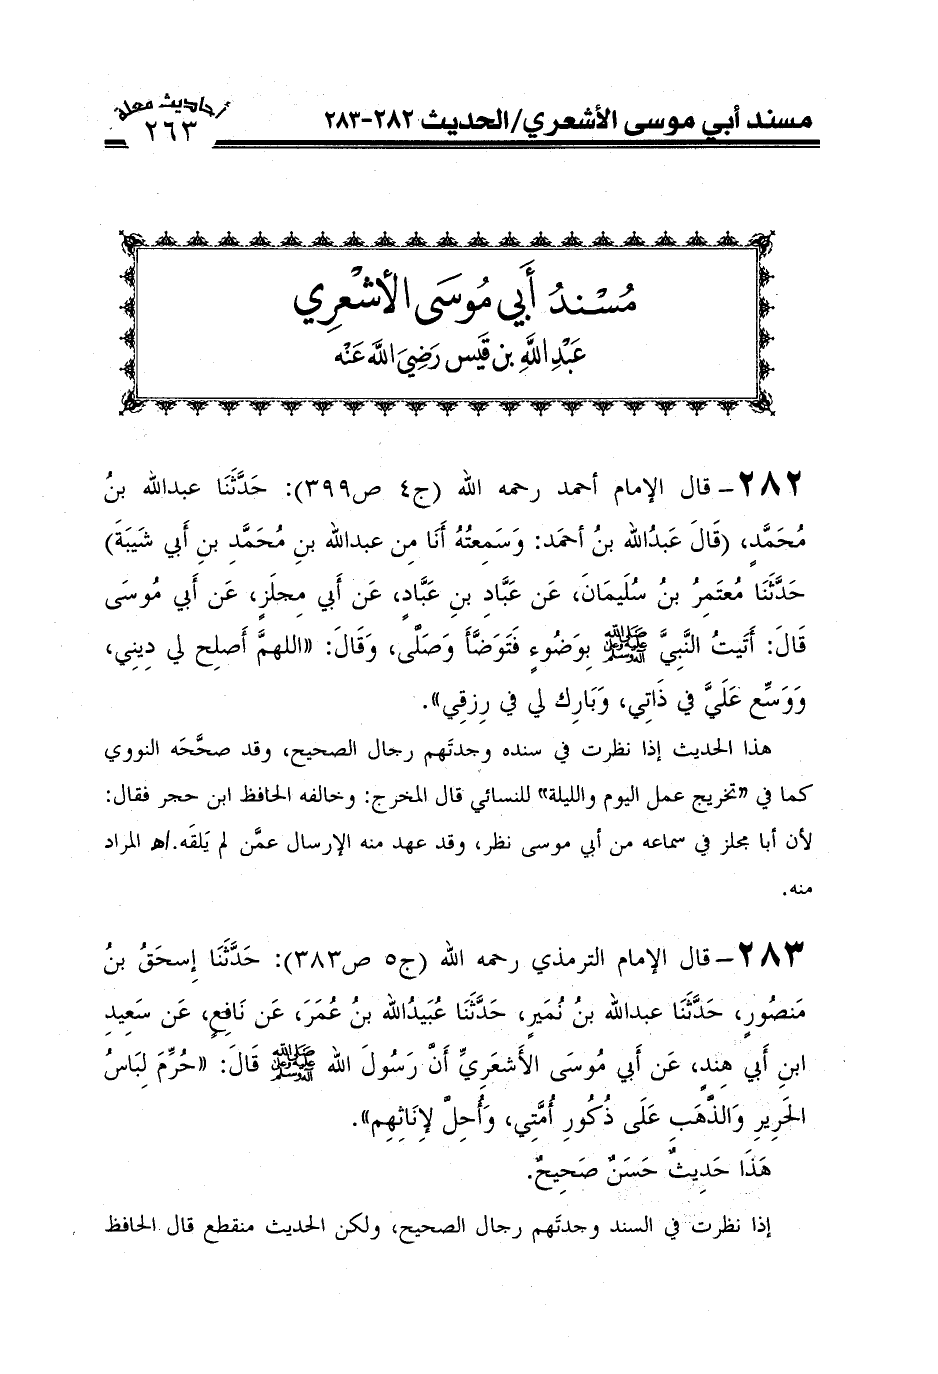 مسند أبي موسى الأشعري/الحديث ٢٨٢-٢٨٣
أحاديث معلة
٢٦٣
مُسْنَدُ أَبِي مُوسَى الأَشْعَرِي
عَبْدِ اللَّهِ بن قَيس رَضِيَ اللَّهُ عَنْه
٢٨٢ـ قال الإمام أحمد رحمه الله (ج٤ ص٣٩٩): حَدَّثَنَا عبدالله بنُ
مُحَمَّدٍ، (قَالَ عَبدُالله بنُ أحمَد: وَسَمِعتُهُ أَنَا مِن عبدالله بنِ مُحَمَّدِ بنِ أَبِي شَيبَةَ)
حَدَّثَنَا مُعتَمِرُ بنُ سُلَيمَانَ، عَن عَبَّادِ بنِ عَبَّادٍ، عَن أَبِي مِجلَزٍ، عَن أَبِي مُوسَى
قَالَ: أَتَيتُ النَّبِيَّ ﷺ بِوَضُوءٍ فَتَوَضَّأَ وَصَلَّى، وَقَالَ: «اللهمَّ أَصلِح لي دِينِي،
وَوَسِّع عَلَيَّ في ذَاتِي، وَبَارِك لي في رِزقِي».
هذا الحديث إذا نظرت في سنده وجدتَهم رجال الصحيح، وقد صحَّحَه النووي
كما في «تخريج عمل اليوم والليلة» للنسائي قال المخرج: وخالفه الحافظ ابن حجر فقال:
لأن أبا مجلز في سماعه من أبي موسى نظر، وقد عهد منه الإرسال عمَّن لم يَلقَه./ﻫ المراد
منه.
٢٨٣ـ قال الإمام الترمذي رحمه الله (ج٥ ص٣٨٣): حَدَّثَنَا إِسحَقُ بنُ
مَنصُورٍ، حَدَّثَنَا عبدالله بنُ نُمَيرٍ، حَدَّثَنَا عُبَيدُالله بنُ عُمَرَ، عَن نَافِعٍ، عَن سَعِيدِ
ابنِ أَبِي هِندٍ، عَن أَبِي مُوسَى الأَشعَرِيِّ أَنَّ رَسُولَ الله ﷺ قَالَ: «حُرِّمَ لِبَاسُ
الحَرِيرِ وَالذَّهَبِ عَلَى ذُكُورِ أُمَّتِي، وَأُحِلَّ لإِنَاثِهِم».
هَذَا حَدِيثٌ حَسَنٌ صَحِيحٌ.
إذا نظرت في السند وجدتَهم رجال الصحيح، ولكن الحديث منقطع قال الحافظ